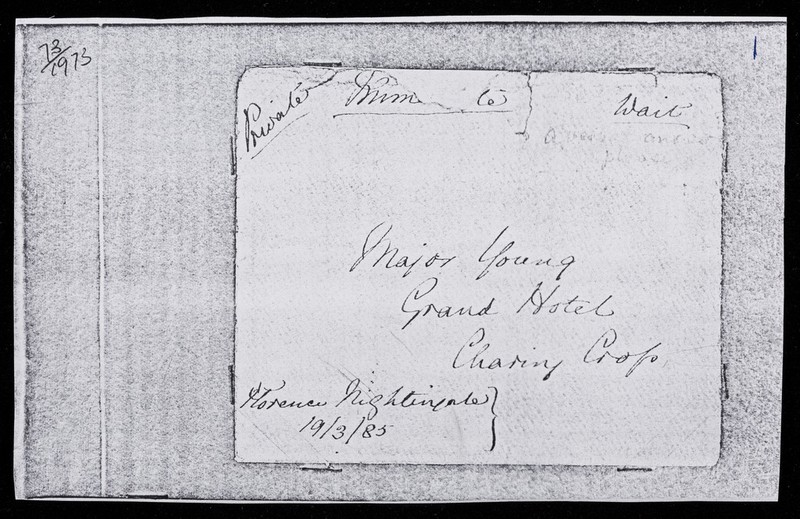 73/1973
1
Private
to
Wait
answer
please
Major Young
Grand Hotel
Charing Cross
Florence Nightingale
19/3/85